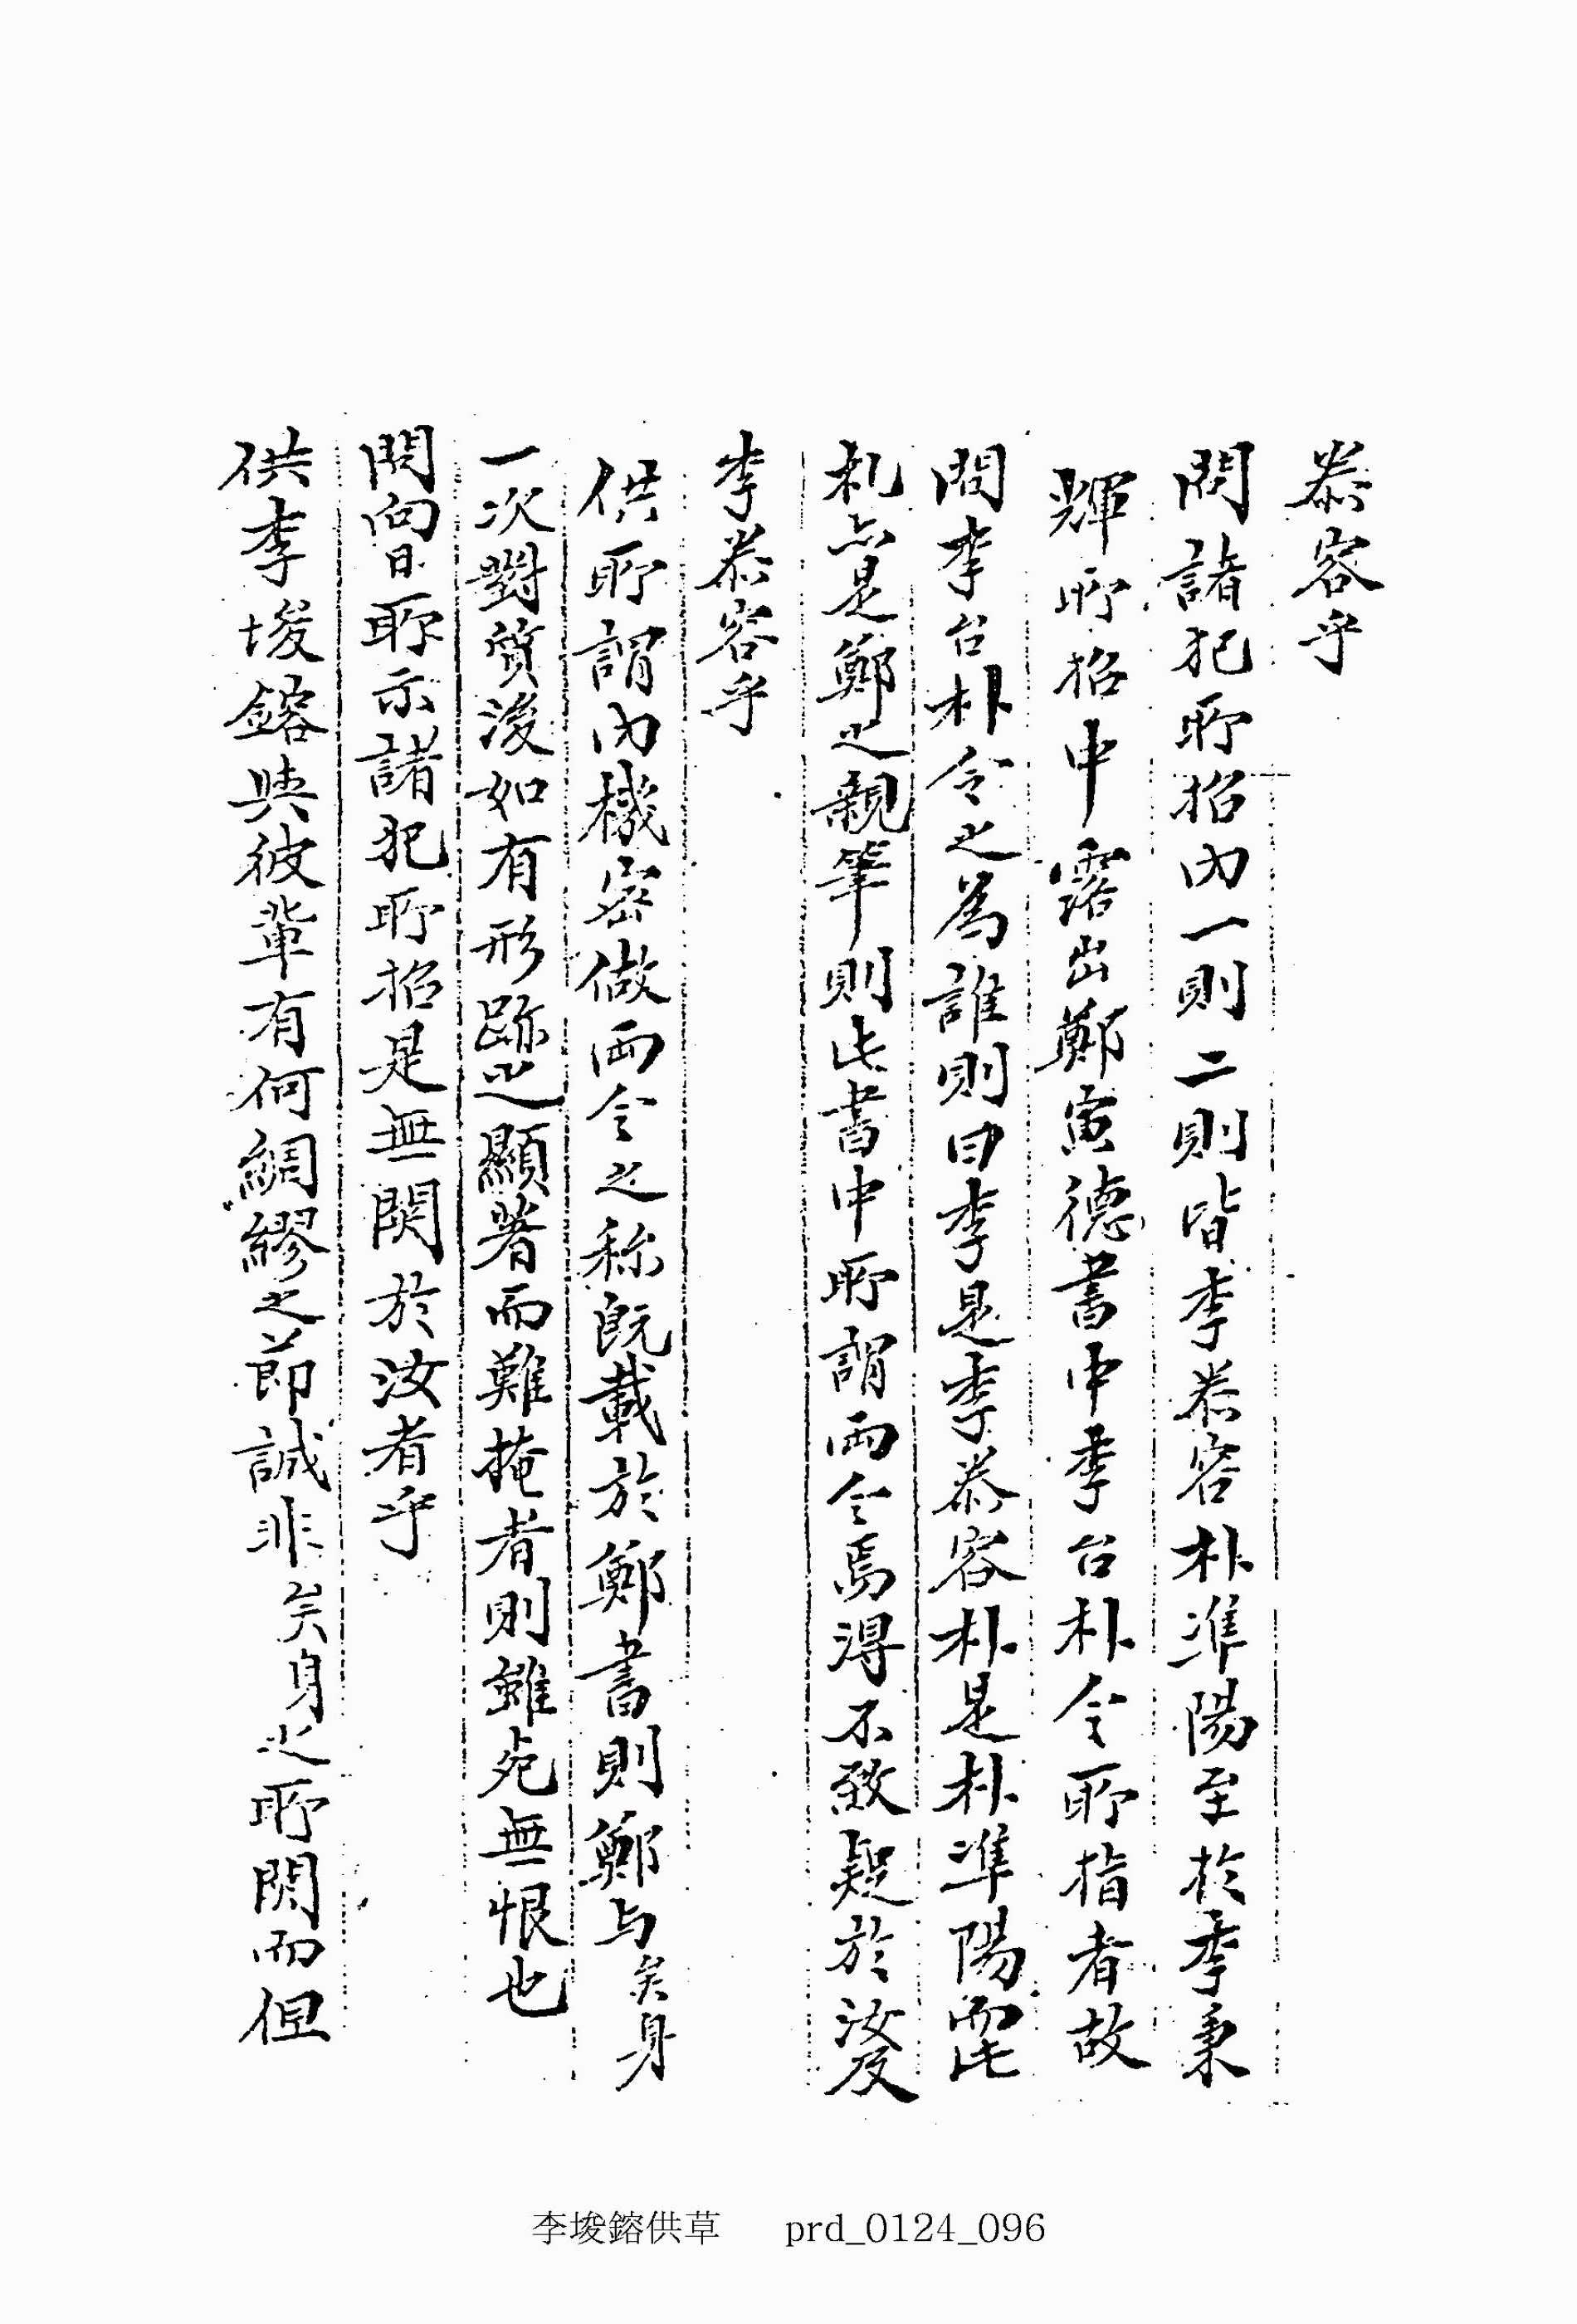 泰容乎
問諸犯所招內一則二則皆李泰容朴準陽至於李秉
輝所招中露出鄭寅德書中李台朴令所指者故
問李台朴令之爲誰則曰李是李泰容朴是朴準陽而此
札亦是鄭之親筆則此書中所謂兩令焉得不致疑於汝及
李泰容乎
供所謂內機密做兩令之称旣載於鄭書則鄭与矣身
一次對質後如有形跡之顯著而難掩者則雖死無恨也
問向日所示諸犯所招是無関於汝者乎
供李埈鎔與彼輩有何綢繆之節誠非矣身之所関而但
李埈鎔供草 prd_0124_096